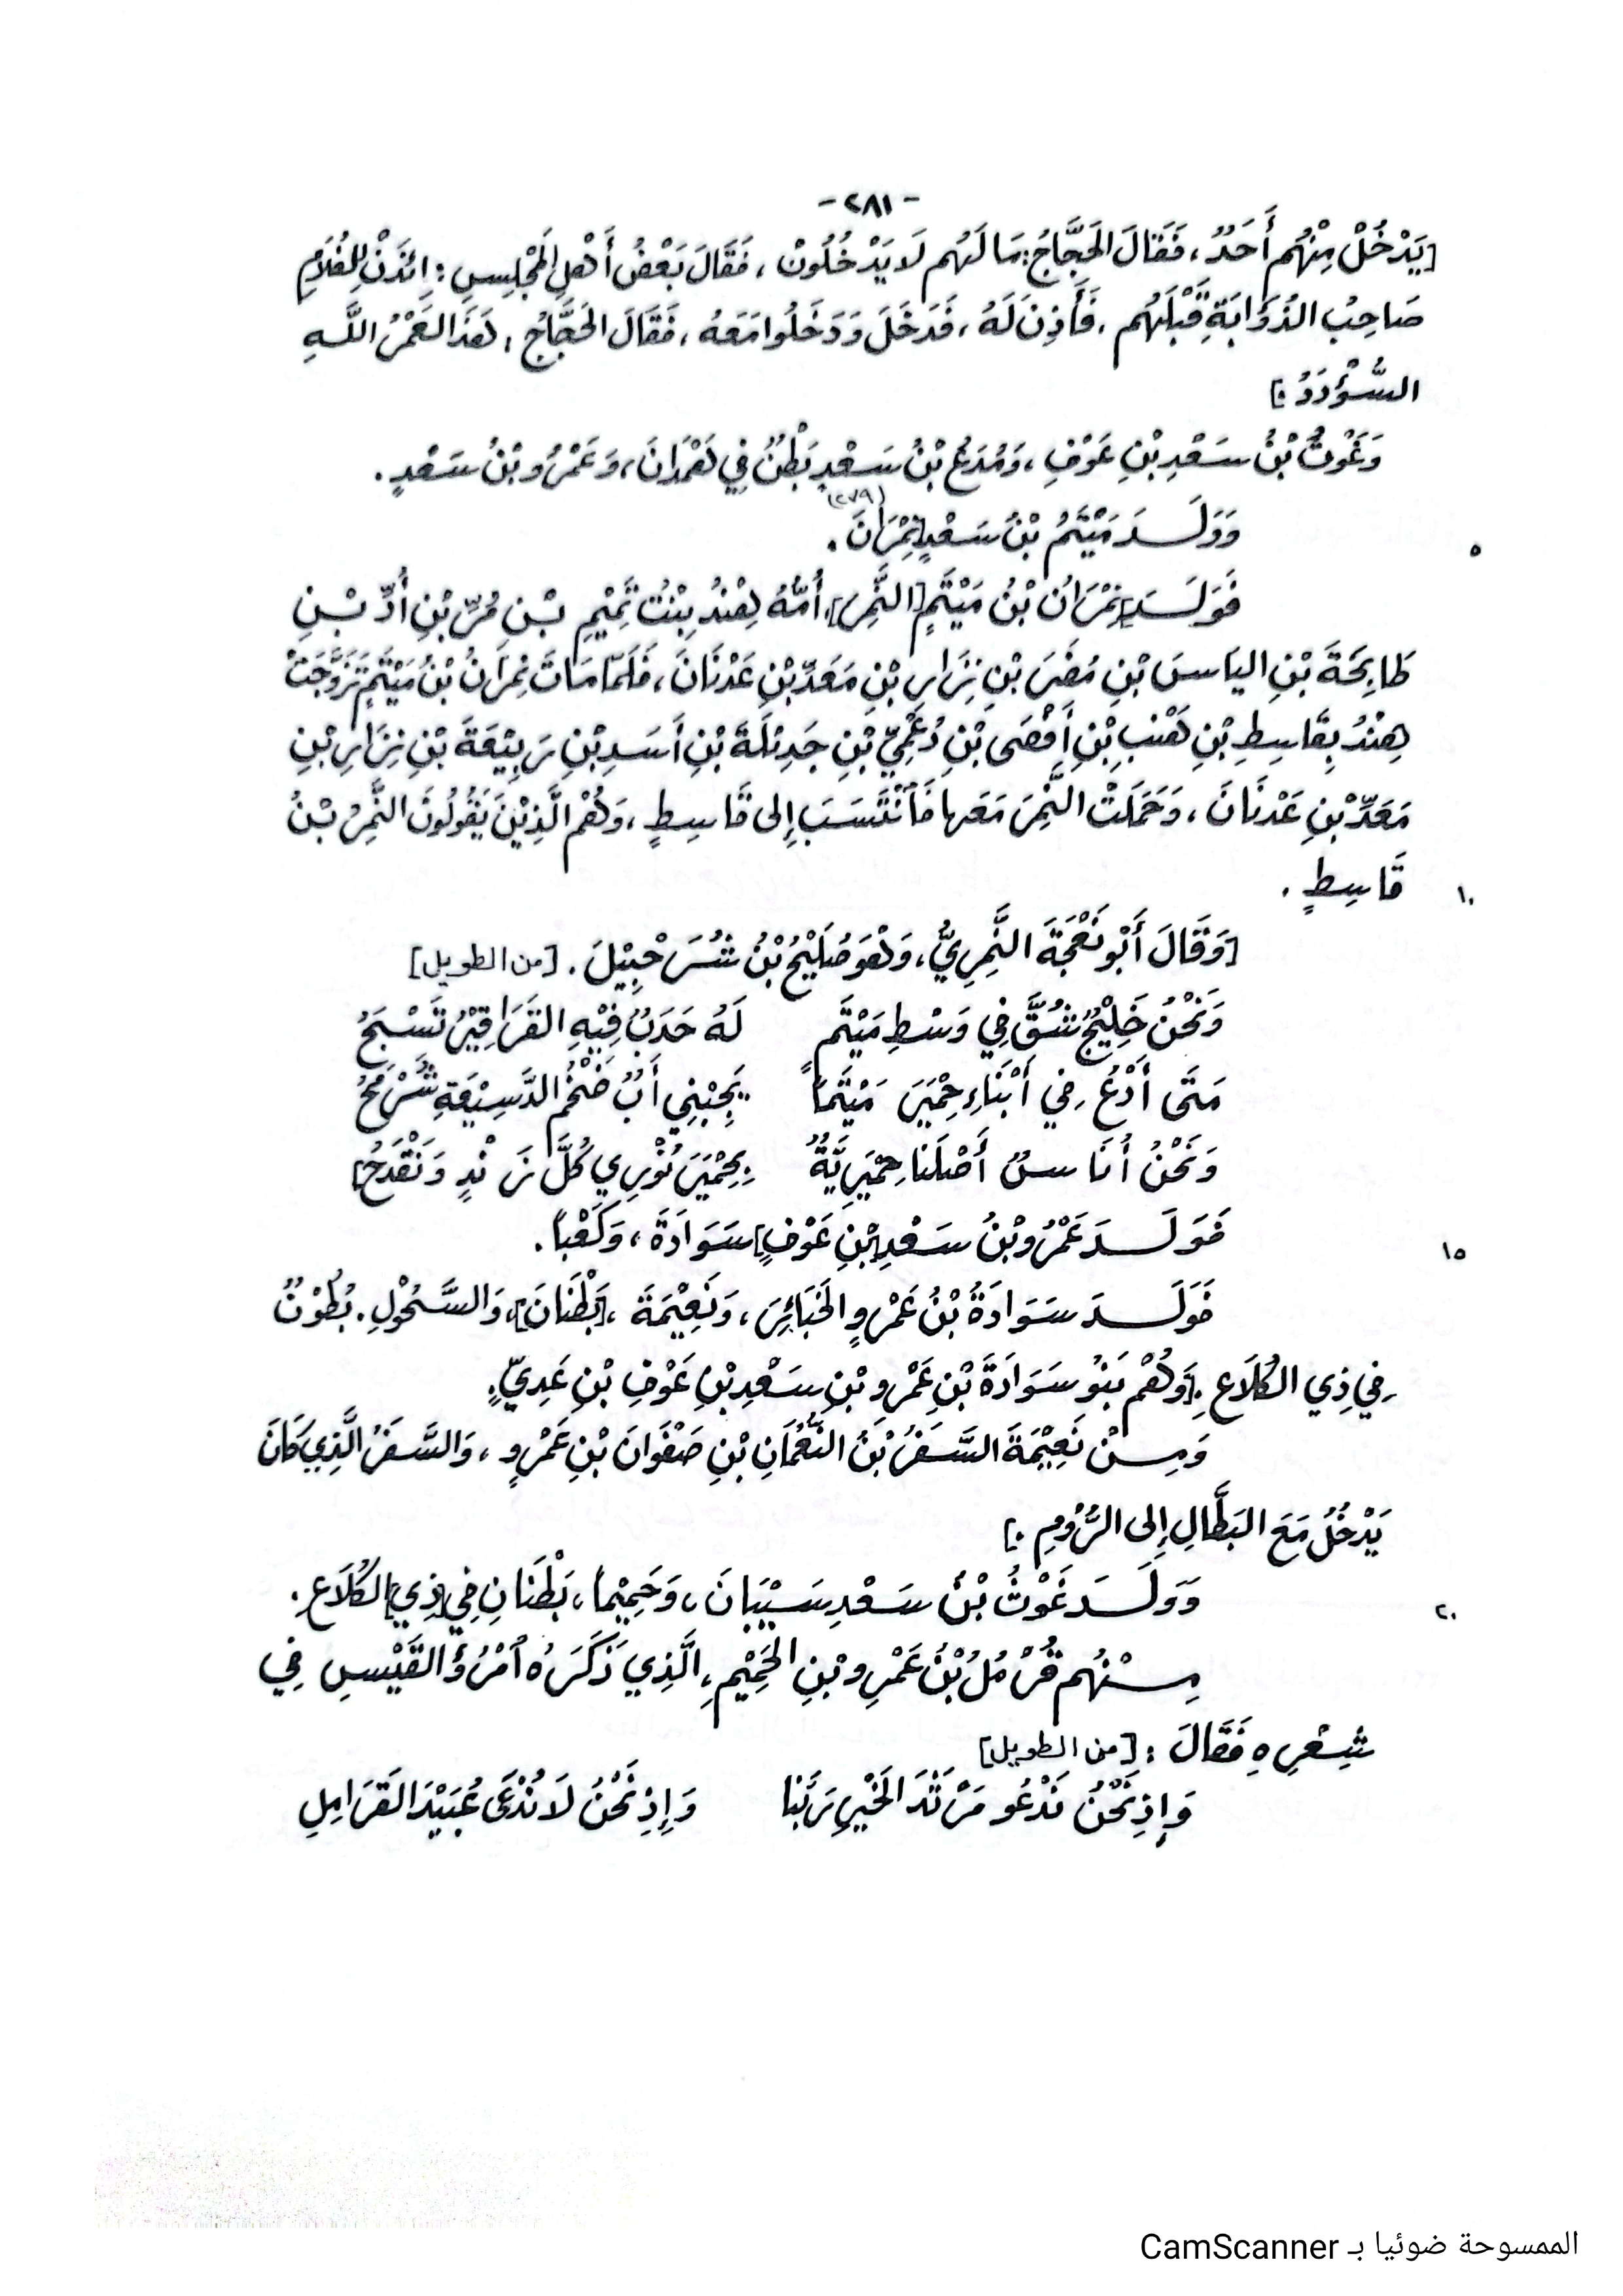 -٢٨١-
[يَدْخُلْ مِنْهُم أَحَدٌ، فَقَالَ الحَجَّاجُ: مَا لَهُم لَا يَدْخُلُونْ، فَقَالَ بَعْضُ أَهْلِ المَجْلِسِ: اِئذَنْ لِلغُلَامِ
صَاحِبِ الذُّوَابَةِ قَبْلَهُم، فَأَذِنَ لَهُ، فَدَخَلَ وَدَخَلُوا مَعَهُ، فَقَالَ الحَجَّاجُ: هَذَا لَعَمْرُ اللَّهِ
السُّؤْدَدُ.]
وَغَوْثُ بْنُ سَعْدِ بْنِ عَوْفٍ، وَمُدَعُ بْنُ سَعْدٍ بَطْنٌ فِي هَمْدَانَ، وَعَمْرُو بْنُ سَعْدٍ.
وَوَلَدَ مَيْتَمُ بْنُ سَعْدٍ نِمْرَانَ. (٢٧٩)
٥
فَوَلَدَ نِمْرَانُ بْنُ مَيْتَمٍ [النَّمِرَ]، أُمُّهُ هِنْدُ بِنْتُ تَمِيْمِ بْنِ مُرِّ بْنِ أُدِّ بْنِ
طَابِخَةَ بْنِ اليَاسَ بْنِ مُضَرَ بْنِ نِزَارِ بْنِ مَعَدِّ بْنِ عَدْنَانَ، فَلَمَّا مَاتَ نِمْرَانُ بْنُ مَيْتَمٍ تَزَوَّجَتْ
هِنْدُ بِقَاسِطِ بْنِ هَنْبِ بْنِ أَفْصَى بْنِ دُعْمِيِّ بْنِ جَدِيْلَةَ بْنِ أَسَدِ بْنِ رَبِيْعَةَ بْنِ نِزَارِ بْنِ
مَعَدِّ بْنِ عَدْنَانَ، وَحَمَلَتْ النَّمِرَ مَعَها فَٱنْتَسَبَ إِلى قَاسِطٍ، وَهُمُ الَّذِيْنَ يَقُولُونَ النَّمِرُ بْنُ
قَاسِطٍ.
١٠
[وَقَالَ أَبُو نَعْجَةَ النَّمِرِيُّ، وَهْوَ صُلَيْحُ بْنُ شُرَحْبِيْلَ. [من الطويل]
وَنَحْنُ خَلِيْجٌ شُقَّ فِي وَسْطِ مَيْتَمٍ لَهُ حَدَبٌ فِيْهِ القَرَاقِيْرُ تَسْبَحُ
مَتَى أَدْعُ فِي أَبْنَاءِ حِمْيَرَ مَيْتَماً يَجِبْنِي أَبٌ ضَخْمُ الدَّسِيْعَةِ شَرْمَحُ
وَنَحْنُ أُنَاسٌ أَصْلُنَا حِمْيَرِيَّةٌ بِحِمْيَرَ نُوْرِي كُلَّ زَنْدٍ وَنَقْدَحُ]
فَوَلَدَ عَمْرُو بْنُ سَعْدِ [بْنِ عَوْفٍ] سَوَادَةَ، وَكَعْباً.
١٥
فَوَلَدَ سَوَادَةُ بْنُ عَمْرٍو الخَبَائِرَ، وَنَعِيْمَةَ، [بَطْنَانَ]، وَالسَّحُوْلِ. بُطُوْنٌ
فِي ذِي الكُلَاعِ. [وَهُمْ بَنُو سَوَادَةَ بْنِ عَمْرِو بْنِ سَعْدِ بْنِ عَوْفِ بْنِ عَدِيٍّ.
وَمِنْ نَعِيْمَةَ السَّفَرُ بْنُ النُّعْمَانِ بْنِ صَفْوَانَ بْنِ عَمْرٍو، وَالسَّفَرُ الَّذِي كَانَ
يَدْخُلُ مَعَ البَطَّالِ إِلى الرُّوْمِ.]
وَوَلَدَ غَوْثُ بْنُ سَعْدٍ سَيْبَانَ، وَحَمِيْماً، بَطْنَانِ فِي [ذِي] الكُلَاعِ.
٢٠
مِنْهُم قُرْمُلُ بْنُ عَمْرِو بْنِ الحَمِيْمِ، الَّذِي ذَكَرَهُ ٱمْرُؤُ القَيْسِ فِي
شِعْرِهِ فَقَالَ: [من الطويل]
وَإِذِ نَحْنُ نَدْعُو مَرْثَدَ الخَيْرِ رَبَّنا وَإِذِ نَحْنُ لَا نُدْعَى عُبَيْدَ القَرَامِلِ
الممسوحة ضوئيا بـ CamScanner